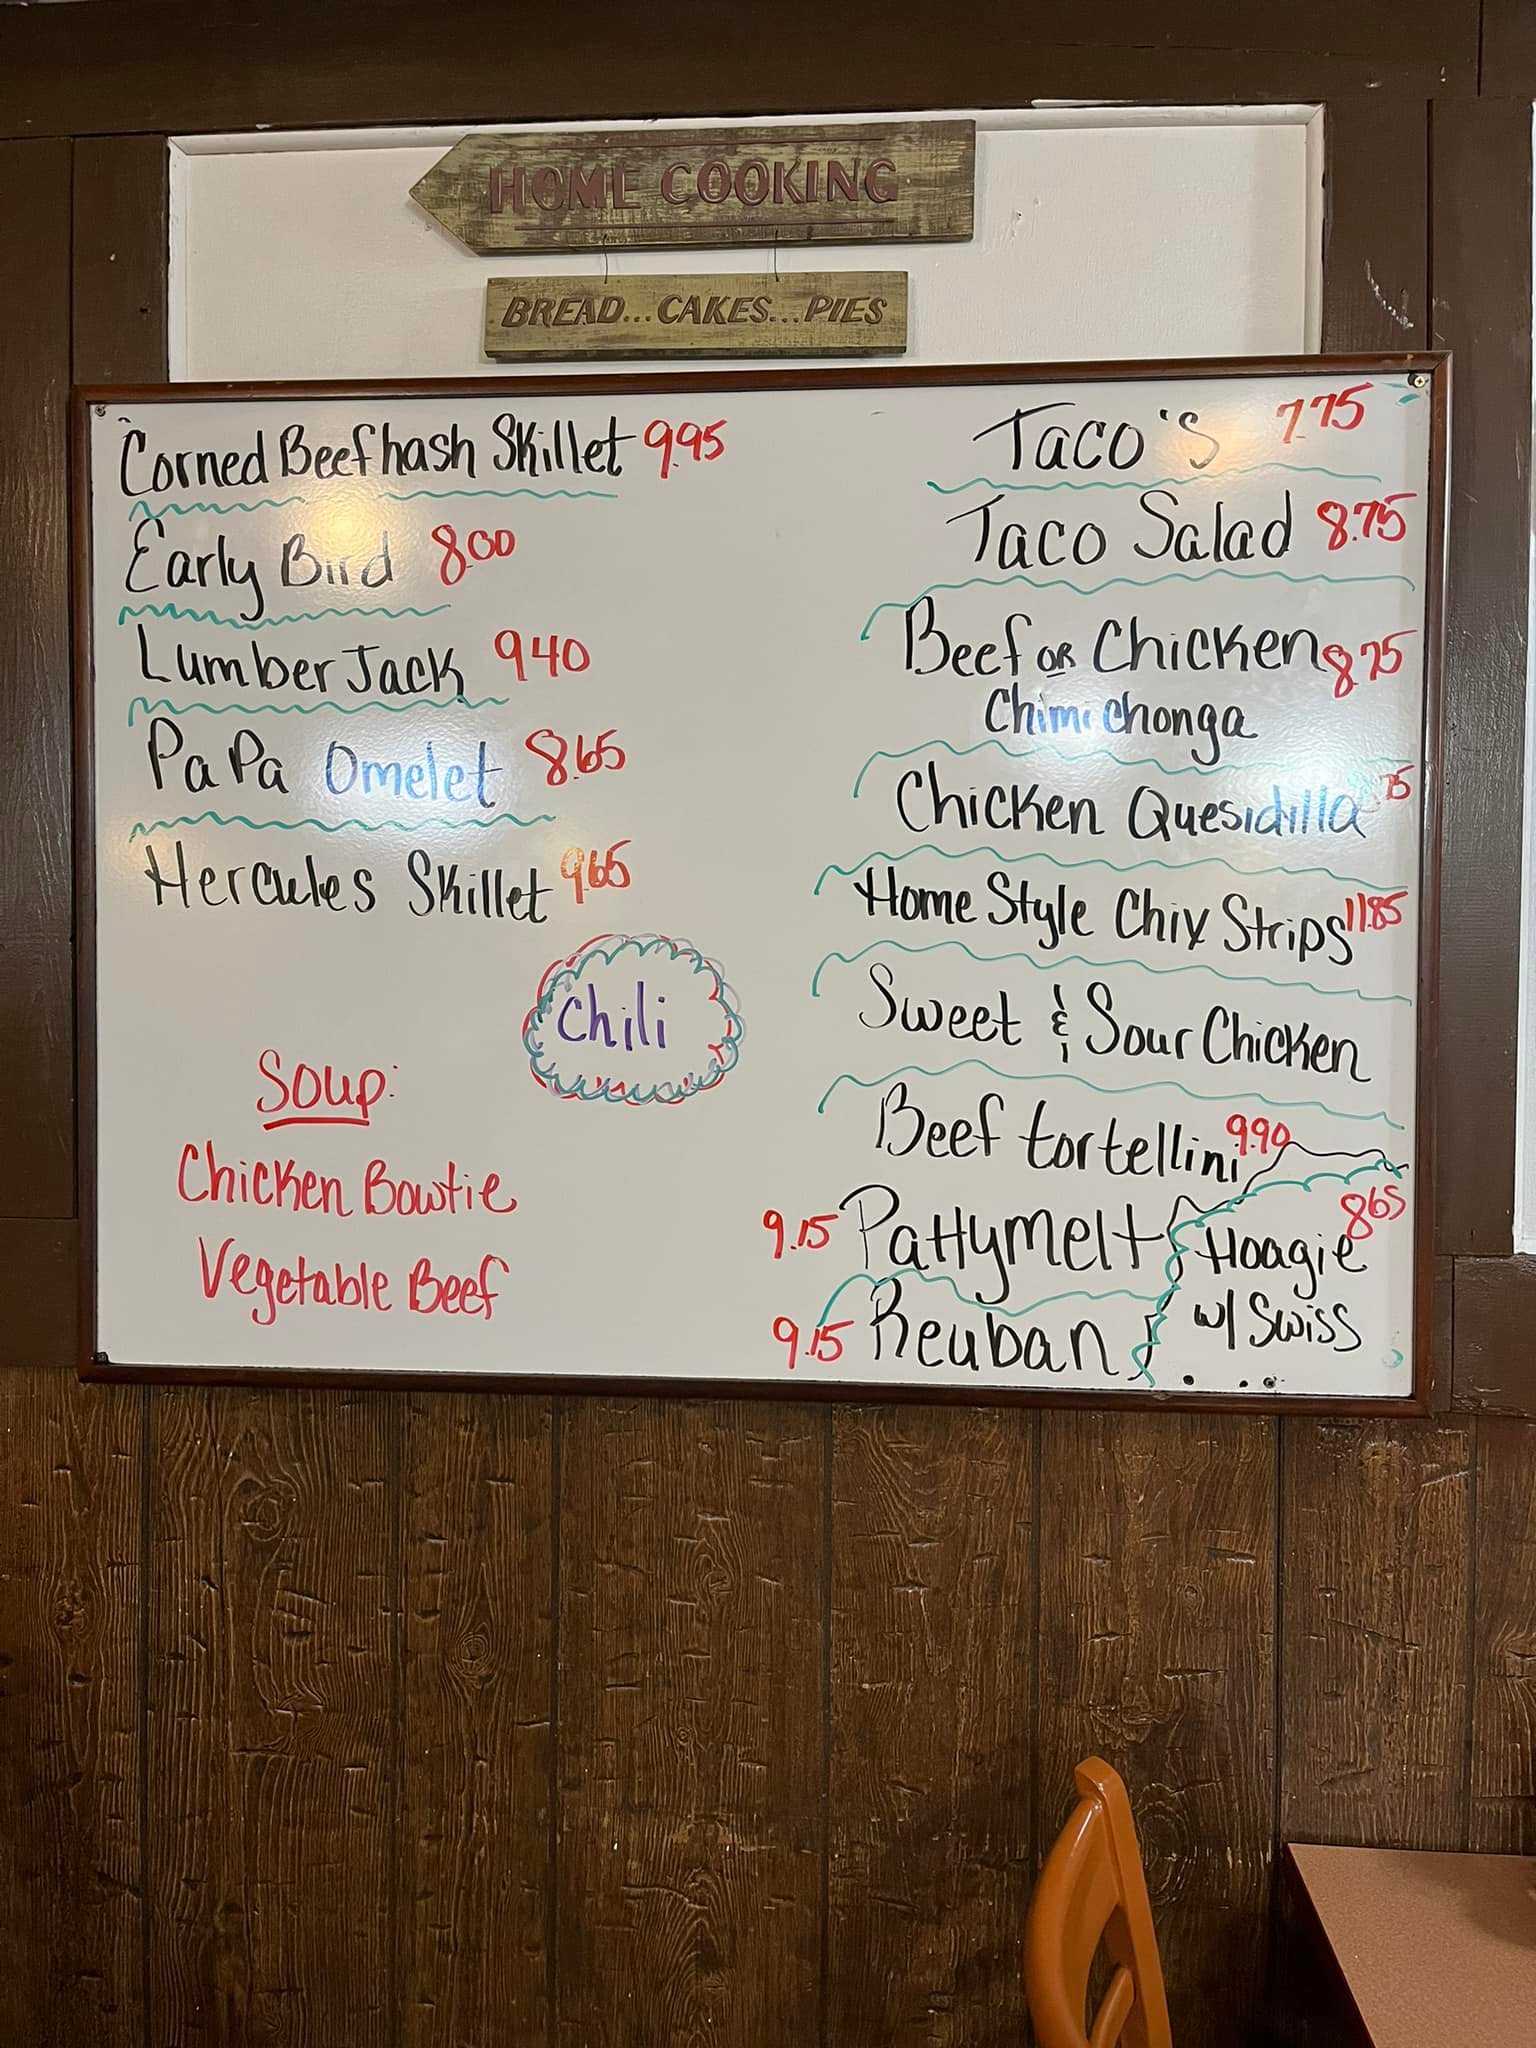 HOME COOKING
BREAD...CAKES...PIES
Corned Beef hash Skillet 9.95
Early Bird 8.00
Lumber Jack 940
PaPa Omelet 8.65
Hercules Skillet 9.65
Chili
Soup:
Chicken Bowtie
Vegetable Beef
Taco's 7.75
Taco Salad 8.75
Beef OR Chicken 8.75
Chimichonga
Chicken Quesidilla
Home Style Chix Strips 11.85
Sweet & Sour Chicken
Beef tortellini 9.90
9.15 Pattymelt
9.15 Reuban
Hoagie 8.65
w/ Swiss